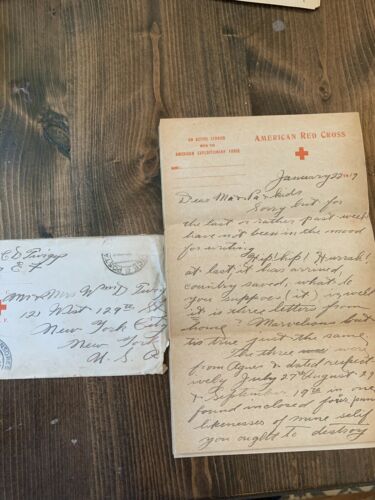 AMERICAN RED CROSS
ON ACTIVE SERVICE
WITH THE
AMERICAN EXPEDITIONARY FORCE
January 22nd 19
Dear Ma & Pa & kids
Sorry but for
the last or rather past week
have not been in the mood
for writing
Hip! hip! Hurrah!
at last it has arrived,
country saved, what do
you suppose (it) is, well
it is three letters from
home? Marvelous but
tis true just the same
The three were
from Agnes & dated respect
ively July 27th August 29
& September 19th in one
found inclosed four
likenesses of mine self
you ought to destroy
C D
E F
Mr & Mrs Wm D
121 West 129th St
New York City
New York
U.S.A